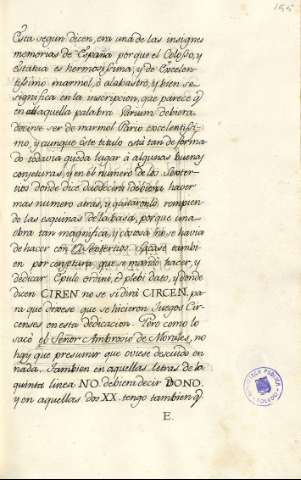 Esta segun dicen, era una de las insignes
memorias de España por que el Coloso, y
Estatua es hermosissima, y de Excelen-
tissimo marmol, ò alabastro, y bien se
significa en la inscripcion, que parece q̃
en aquella palabra Varium debiera
decirse ser de marmol Pario excelentissi-
mo, y aunque este titulo está tan deforma
do todavia queda lugar á algunas buenas
conjeturas, y en el numero de los Sexter-
tios donde dice debiera haver
mas numero atrás, y gastaronlo rompien
do las esquinas de la basa, porque una
obra tan magnifica, y costosa no se havia
de hacer con Sextertios. Sacase tambi-
en por conjetura que se mandó hacer, y
dedicar Epulo ordini, et plebi dato, y donde
dicen CIREN no se si diria CIRCEN, pa
ra que dixese que se hicieron Juegos Cir-
censes en esta dedicacion. Pero como lo
sacó el Señor Ambrosio de Morales, no
hay que presumir que oviese descuido en
nada. Tambien en aquellas letras de la
quinta linea NO. debiera decir DONO.
y en aquellas dos XX. tengo tambien q̃
E.
BIBLIOTECA PUBLICA
TOLEDO